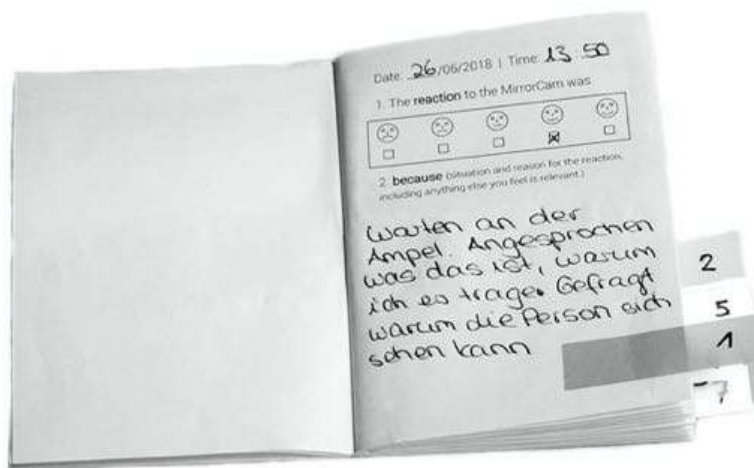 Date: 26/06/2018 | Time: 13:50
1. The reaction to the MirrorCam was
2. because (situation and reason for the reaction,
including anything else you feel is relevant.)
Warten an der
Ampel. Angesprochen
was das ist, warum
ich es trage. Gefragt
warum die Person sich
sehen kann
2
5
1
7